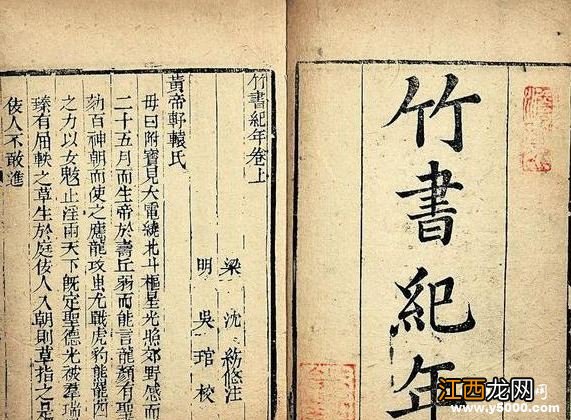 竹書紀年
竹書紀年卷上
梁 沈約修注
明 吳琯校
黃帝軒轅氏
母曰附寶見大電繞北斗樞星光照郊野感而
二十五月而生帝於壽丘弱而能言龍顏有聖
劾百神朝而使之應龍攻蚩尤戰虎豹熊羆四
之力以女魃止淫雨天下旣定聖德光被羣瑞
臻有屈軼之草生於庭佞人入朝則草指之是
佞人不敢進
江西龙网
.com
www.y5000.com